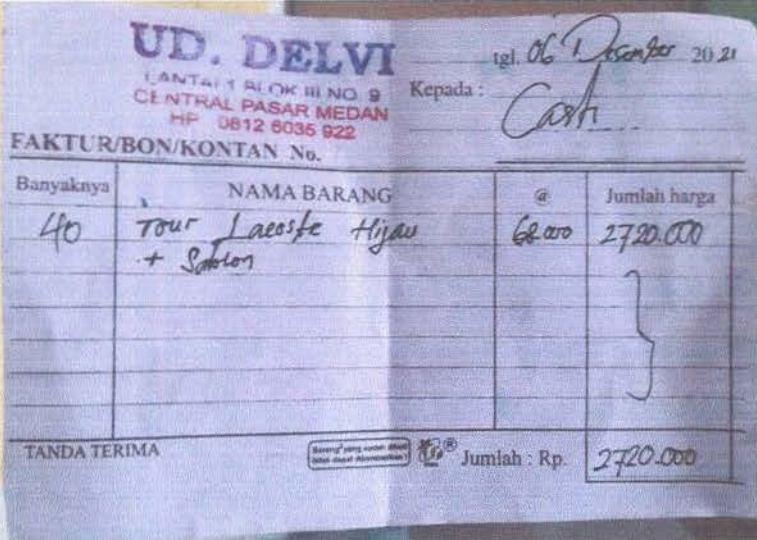 UD. DELVI
LANTAI 1 BLOK III NO. 9
CENTRAL PASAR MEDAN
HP 0812 6035 922
tgl. 06 Desember 2021
Kepada :
Cash
FAKTUR/BON/KONTAN No.
Banyaknya NAMA BARANG @ Jumlah harga
40 Tour Lacoste Hijau 68.000 2720.000
+ Sablon
TANDA TERIMA
Barang² yang sudah dibeli
tidak dapat dikembalikan !
® Jumlah : Rp. 2720.000